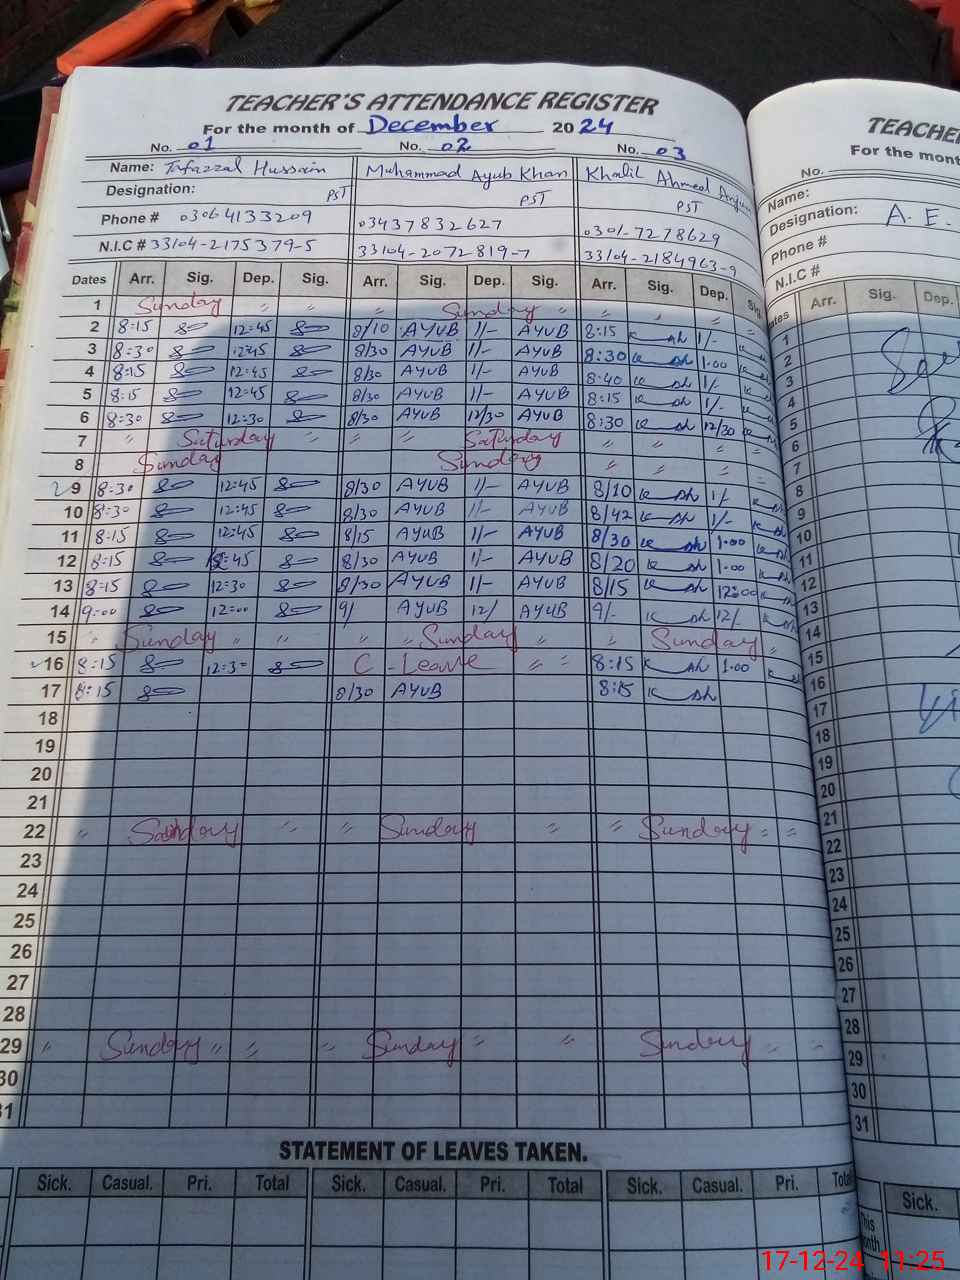 TEACHER'S ATTENDANCE REGISTER
For the month of December 2024
No. 01 No. 02 No. 03
Name: Tafazzal Hussain Muhammad Ayub Khan Khalil Ahmed Anjum
Designation: PST PST PST
Phone # 03064133209 03437832627 0301-7278629
N.I.C # 33104-2175379-5 33104-2072819-7 33104-2184963-9
Dates Arr. Sig. Dep. Sig. Arr. Sig. Dep. Sig. Arr. Sig. Dep. Sig.
1 Sunday " " " Sunday " " " " "
2 8:15 12:45 8/10 AYUB 1/- AYUB 8:15 1/-
3 8:30 12:45 8/30 AYUB 1/- AYUB 8:30 1.00
4 8:15 12:45 8/30 AYUB 1/- AYUB 8:40 1/-
5 8:15 12:45 8/30 AYUB 1/- AYUB 8:15 1/-
6 8:30 12:30 8/30 AYUB 12/30 AYUB 8:30 12/30
7 " Saturday " " " Saturday " " " "
8 Sunday Sunday " " " "
9 8:30 12:45 8/30 AYUB 1/- AYUB 8/10 1/-
10 8:30 12:45 8/30 AYUB 1/- AYUB 8/42 1/-
11 8:15 12:45 8/15 AYUB 1/- AYUB 8/30 1.00
12 8:15 12:45 8/30 AYUB 1/- AYUB 8/20 1.00
13 8:15 12:30 8/30 AYUB 1/- AYUB 8/15 12:00
14 9:00 12:00 9/ AYUB 12/ AYUB 9/- 12/-
15 " Sunday " " " " Sunday " Sunday "
16 8:15 12:3- C-Leave " " 8:15 1.00
17 8:15 8/30 AYUB 8:15
18
19
20
21
22 " Sunday " " Sunday " " Sunday " "
23
24
25
26
27
28
29 " Sunday " " " Sunday " " Sunday " "
30
31
STATEMENT OF LEAVES TAKEN.
Sick. Casual. Pri. Total Sick. Casual. Pri. Total Sick. Casual. Pri. Total
TEACHE
For the mont
No.
Name:
Designation: A.E.
Phone #
N.I.C #
Arr. Sig. Dep.
1
2
3
4
5
6
7
8
9
10
11
12
13
14
15
16
17
18
19
20
21
22
23
24
25
26
27
28
29
30
31
Sick.
This
17-12-24 11:25